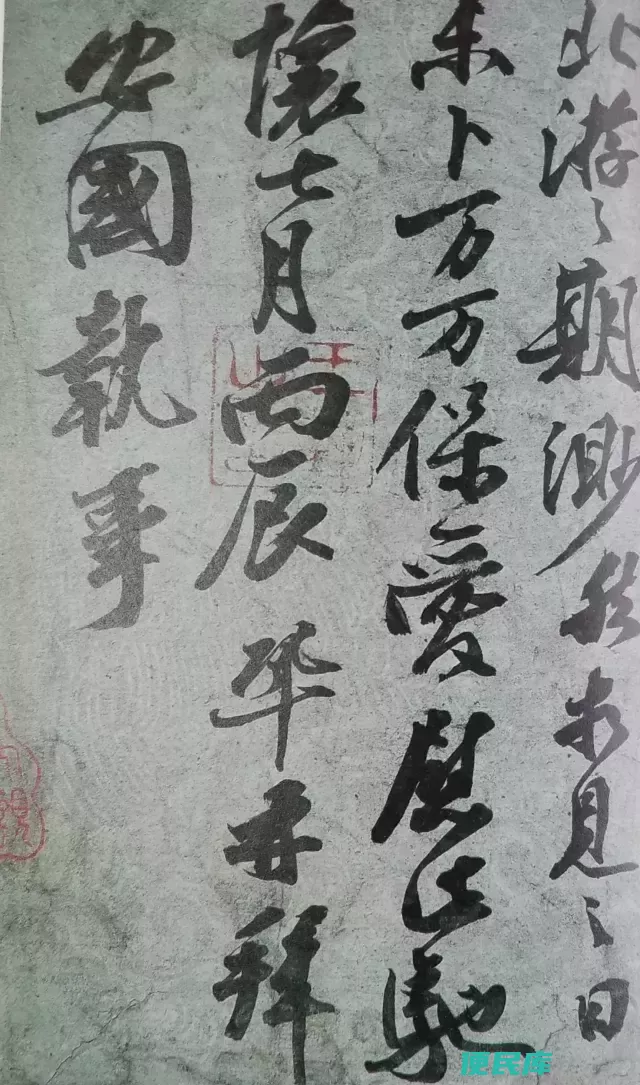 北游之期渺然相見之日
未卜万万保愛慰此馳
懷七月丙辰鞏再拜
安國執事
便民库